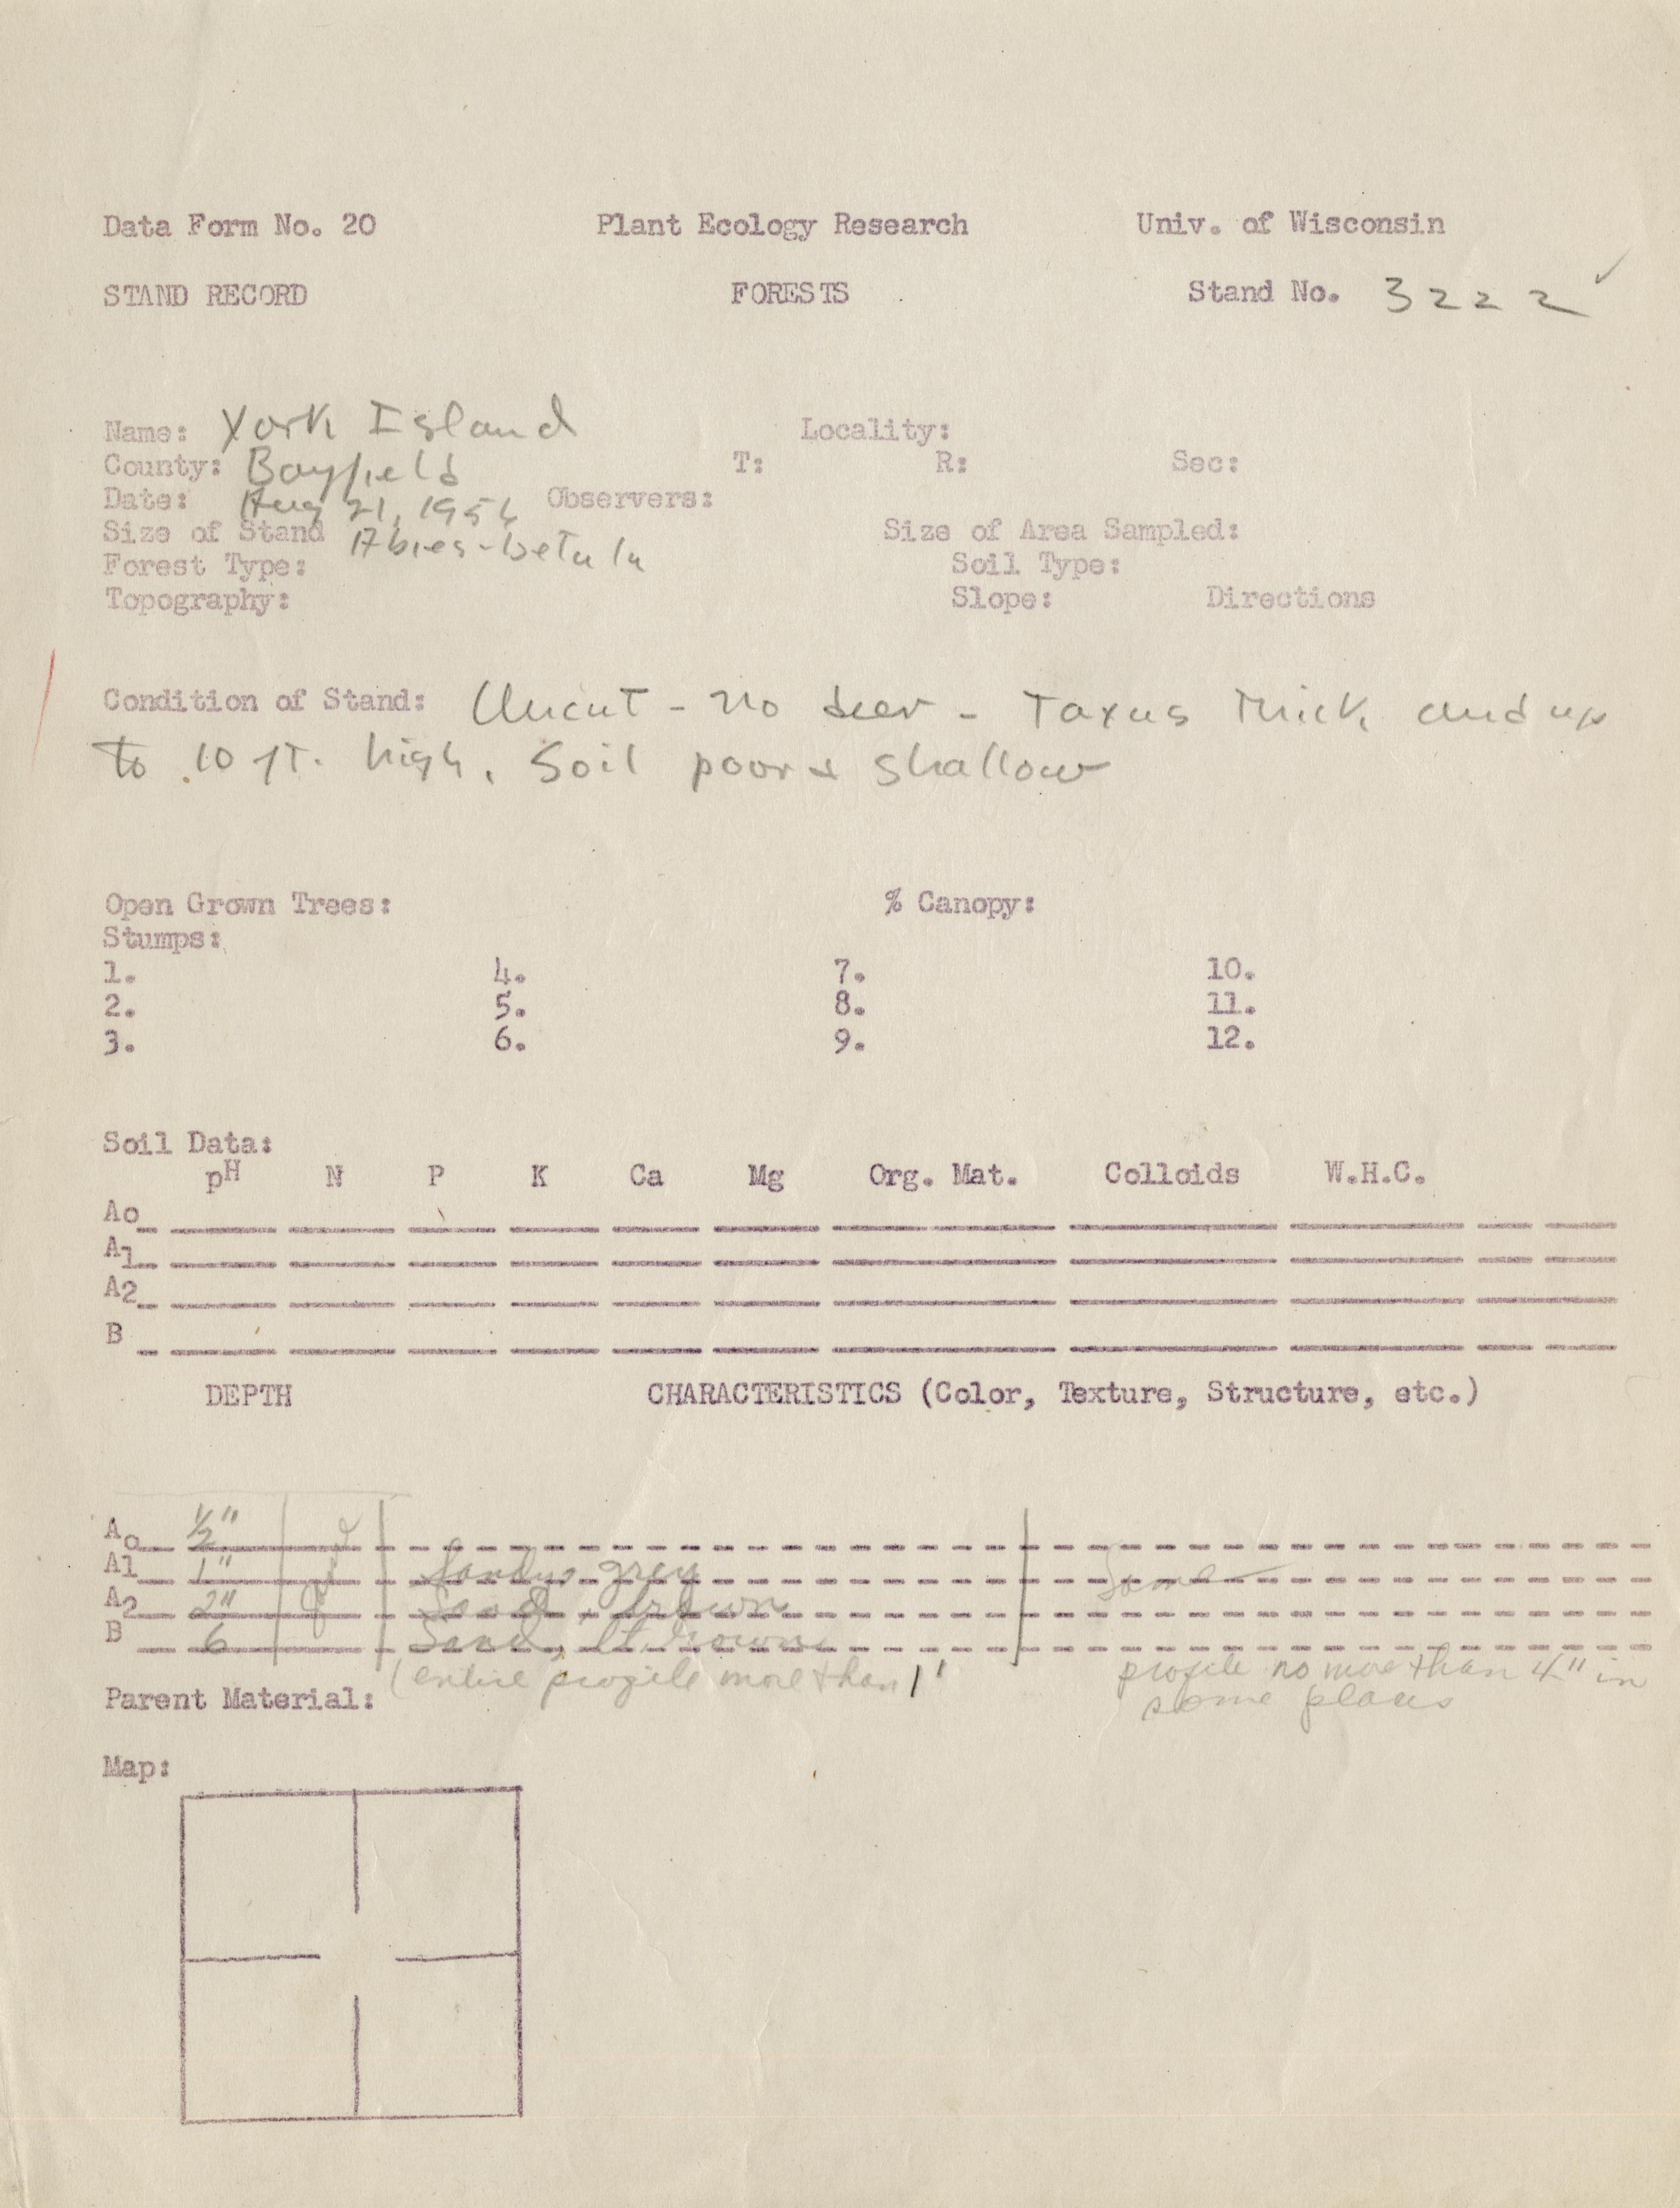 Data Form No. 20 Plant Ecology Research Univ. of Wisconsin
STAND RECORD FORESTS Stand No. 3222
Name: York Island Locality:
County: Bayfield T: R: Sec:
Date: Aug 21, 1956 Observers:
Size of Stand Abies-betula Size of Area Sampled:
Forest Type: Soil Type:
Topography: Slope: Directions
Condition of Stand: Uncut - no deer - Taxus thick and up
to 10 ft. high. Soil poor & shallow
Open Grown Trees: % Canopy:
Stumps:
1. 4. 7. 10.
2. 5. 8. 11.
3. 6. 9. 12.
Soil Data:
pH N P K Ca Mg Org. Mat. Colloids W.H.C.
Ao
A1
A2
B
DEPTH CHARACTERISTICS (Color, Texture, Structure, etc.)
Ao 1/2"
A1 1" Sandy grey Some
A2 2" Sand, brown
B 6 Sand, lt. brown
(entire profile more than 1' profile no more than 4" in
some places
Parent Material:
Map: